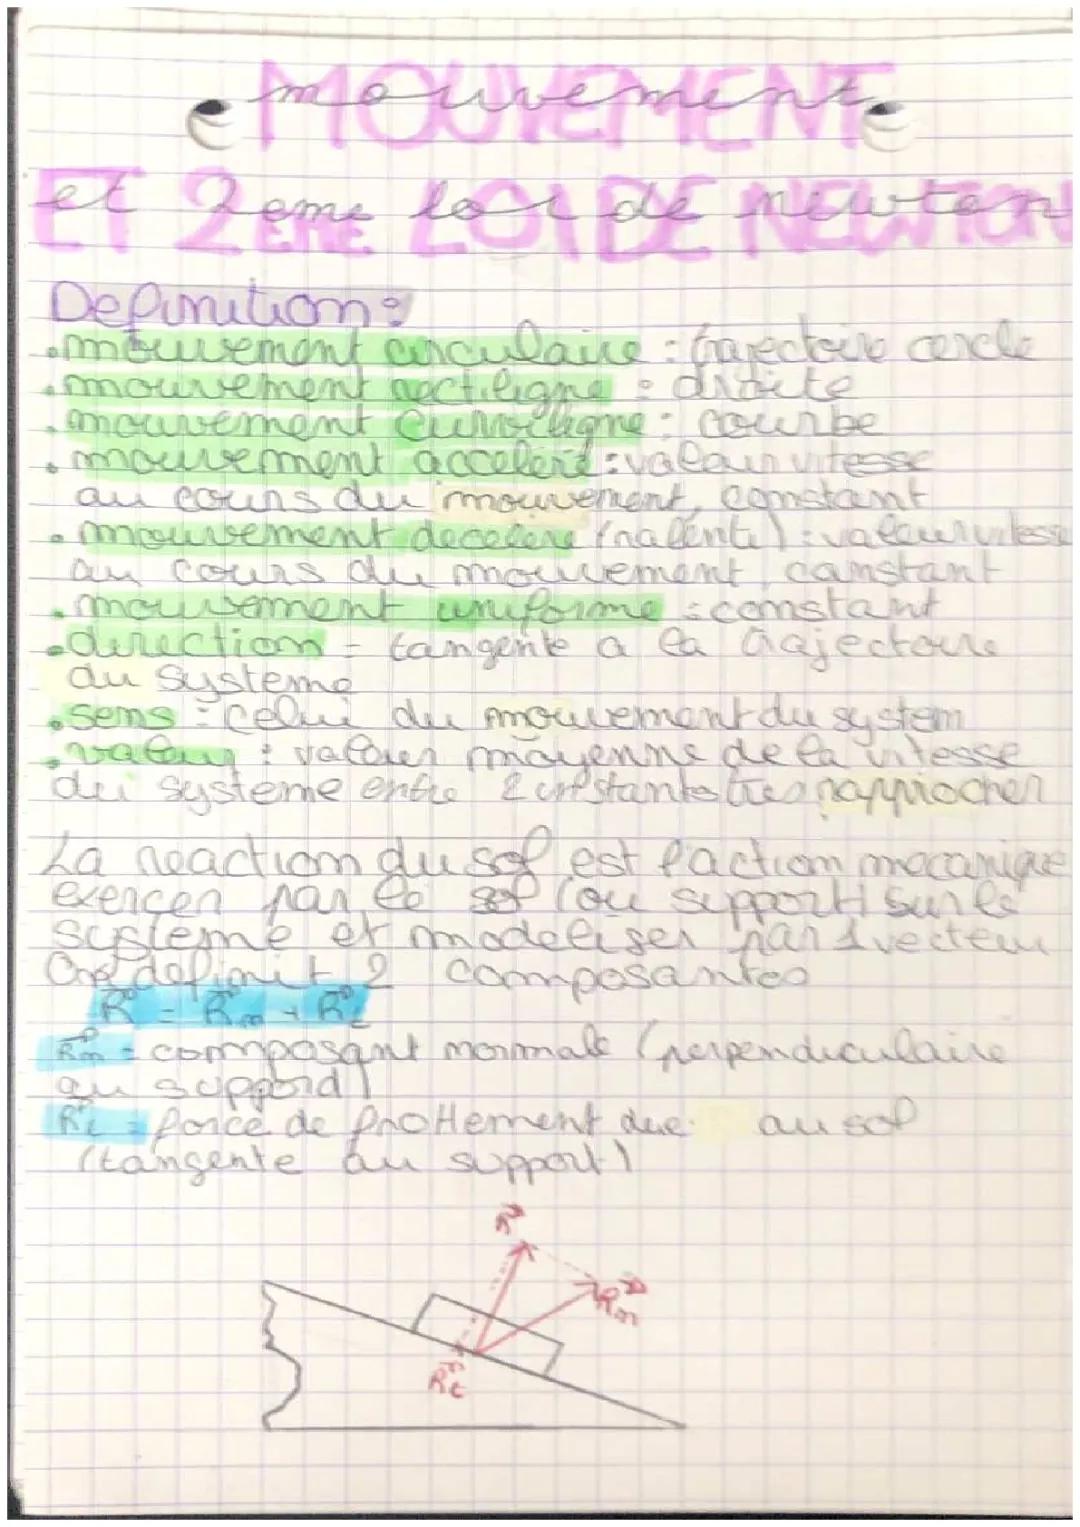 mouvement
MOUVEMENT
et 2eme loi de newton
ET 2EME LOI DE NEWTON
Definition:
• mouvement circulaire : trajectoire cercle
• mouvement rectiligne : droite
• mouvement curviligne : courbe
• mouvement acceleré : valeur vitesse
au cours du mouvement, constant
• mouvement decelere (ralenti) : valeur vitesse
au cours du mouvement, constant
• mouvement uniforme : constant
• direction = tangente a la trajectoire
du systeme
• sens : celui du mouvement du system
• valeur : valeur moyenne de la vitesse
du systeme entre 2 instants tres rapprocher
La reaction du sol est l'action mecanique
exercer par le sol (ou support) sur le
systeme et modeliser par 1 vecteur
On definit 2 composantes
R = Rn + Rt
Rn = composant normale (perpendiculaire
au suppord)
Rt = force de frottement due au sol
(tangente au support)
R
Rn
Rt